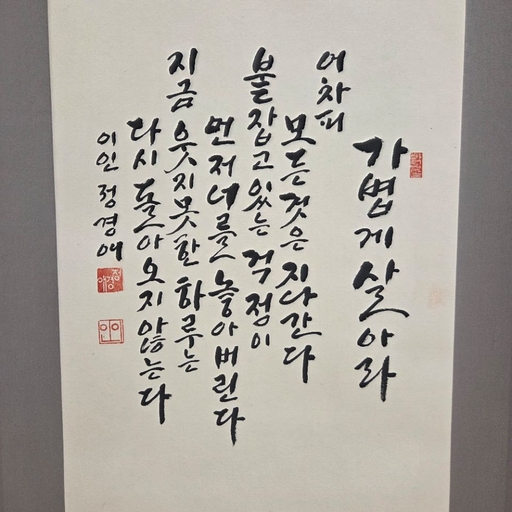 가볍게 살아라
어차피
모든 것은 지나간다
붙잡고 있는 걱정이
먼저 너를 놓아버린다
지금 웃지 못한 하루는
다시 돌아오지 않는다
이인 정경애